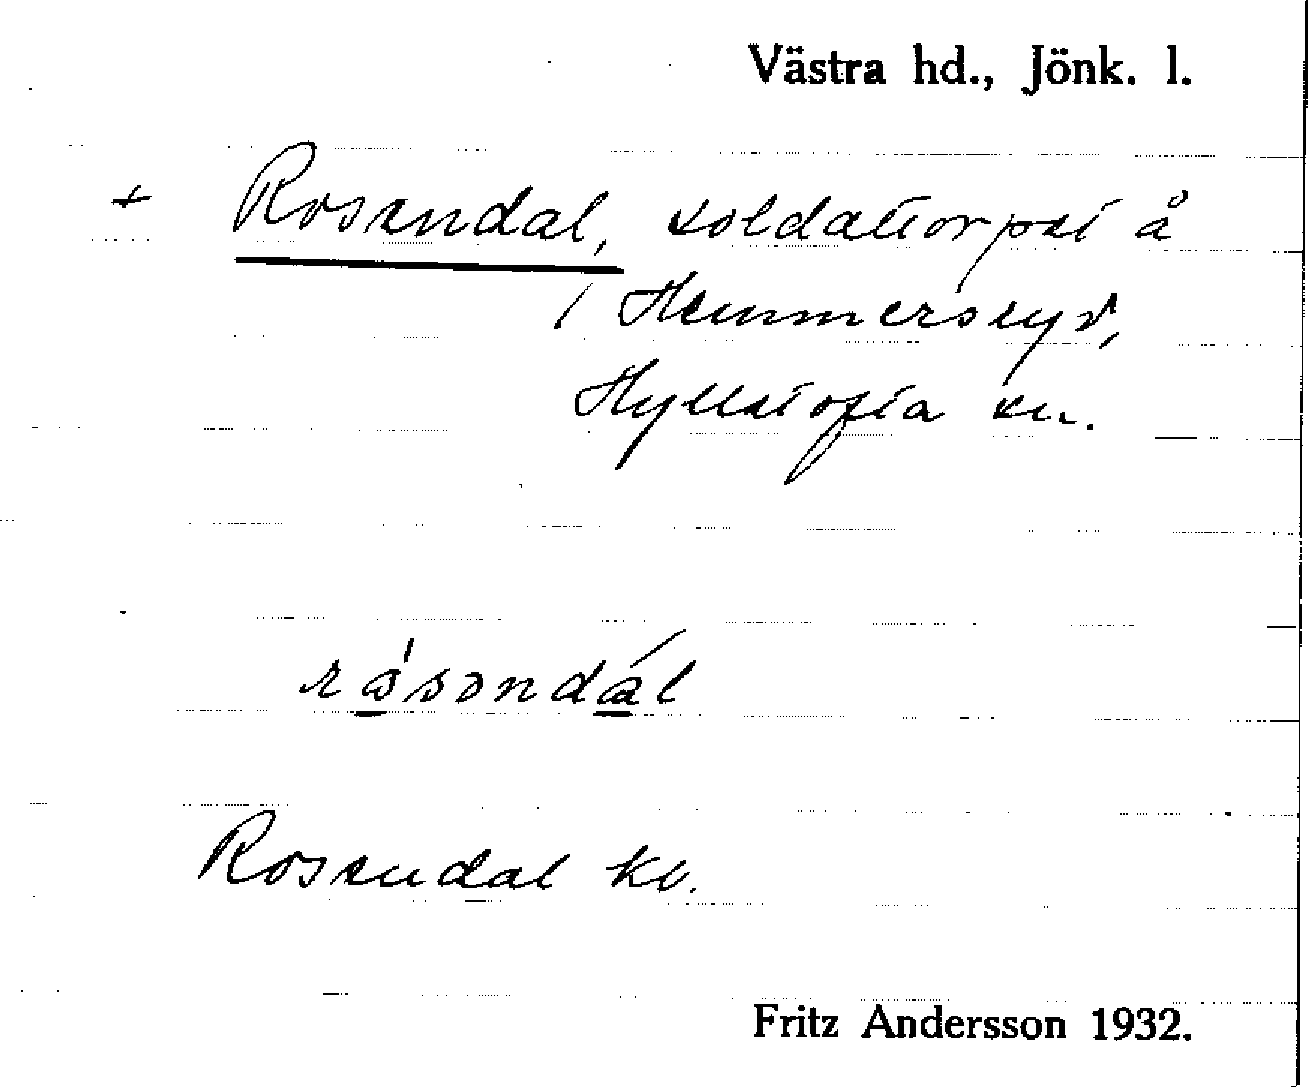 Västra hd., Jönk. l.
+ Rosendal, soldattorpet å
/ Hemmersryd,
Hylletofta sn.
rǻsəndál
Rosendal kb.
Fritz Andersson 1932.